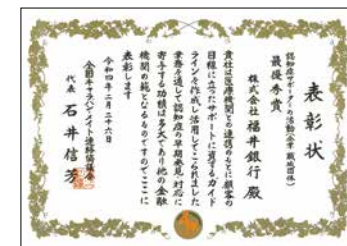 表彰状
認知症サポーターの活動(企業・職域団体)
最優秀賞
株式会社 福井銀行 殿
貴社は医療機関との連携のもとに顧客の
目線に立ったサポートに資するガイド
ラインを作成し活用してこられました
業務を通して認知症の早期発見・対応に
寄与する功績は多大であり他の金融
機関の範となるものですのでここに
表彰します
令和四年二月二十六日
全国キャラバン・メイト連絡協議会
代表 石井信芳